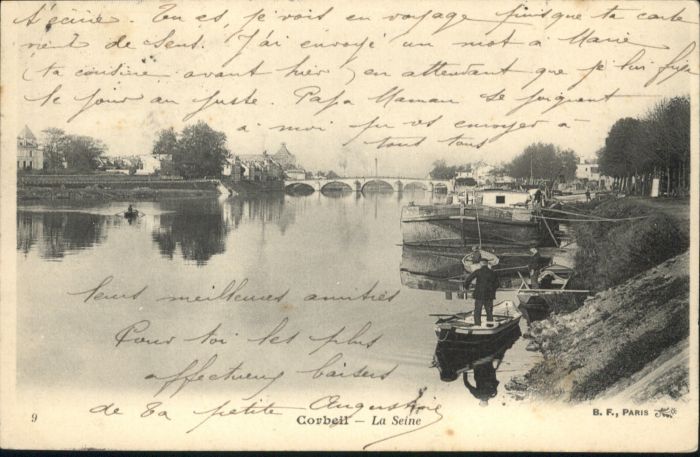 t'écrire. Tu es, je vois en voyage puisque ta carte
vient de Sens. J'ai envoyé un mot à Marie
(ta cousine avant hier) en attendant que je lui
le jour au juste. Papa Maman se joignent
à moi pr vs envoyer à
tous tous
leurs meilleures amitiés
Pour toi les plus
affectueux baisers
de ta petite Augustine
9
Corbeil – La Seine
B. F., PARIS